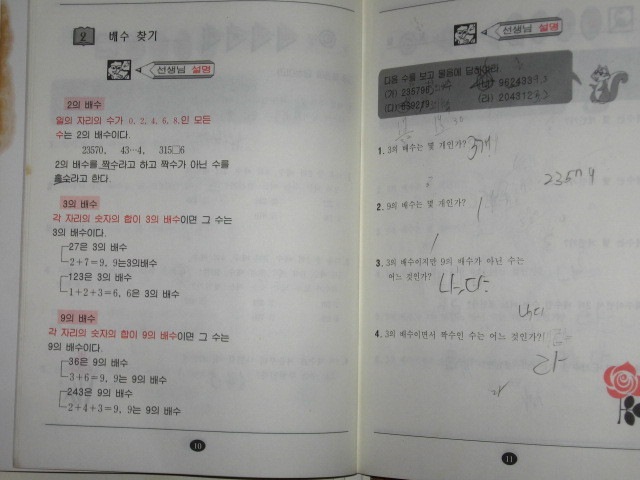 2 배수 찾기
선생님 설명
2의 배수
일의 자리의 수가 0, 2, 4, 6, 8.인 모든
수는 2의 배수이다.
23570, 43…4, 315□6
2의 배수를 짝수라고 하고 짝수가 아닌 수를
홀수라고 한다.
3의 배수
각 자리의 숫자의 합이 3의 배수이면 그 수는
3의 배수이다.
27은 3의 배수
2+7=9, 9는3의배수
123은 3의 배수
1+2+3=6, 6은 3의 배수
9의 배수
각 자리의 숫자의 합이 9의 배수이면 그 수는
9의 배수이다.
36은 9의 배수
3+6=9, 9는 9의 배수
243은 9의 배수
2+4+3=9, 9는 9의 배수
10
선생님 설명
다음 수를 보고 물음에 답하여라.
(가)
(다)
(라)
1. 3의 배수는 몇 개인가? 3개
2. 9의 배수는 몇 개인가? 1
1
3. 3의 배수이지만 9의 배수가 아닌 수는
어느 것인가? 나. 다.
4. 3의 배수이면서 짝수인 수는 어느 것인가?
라
11